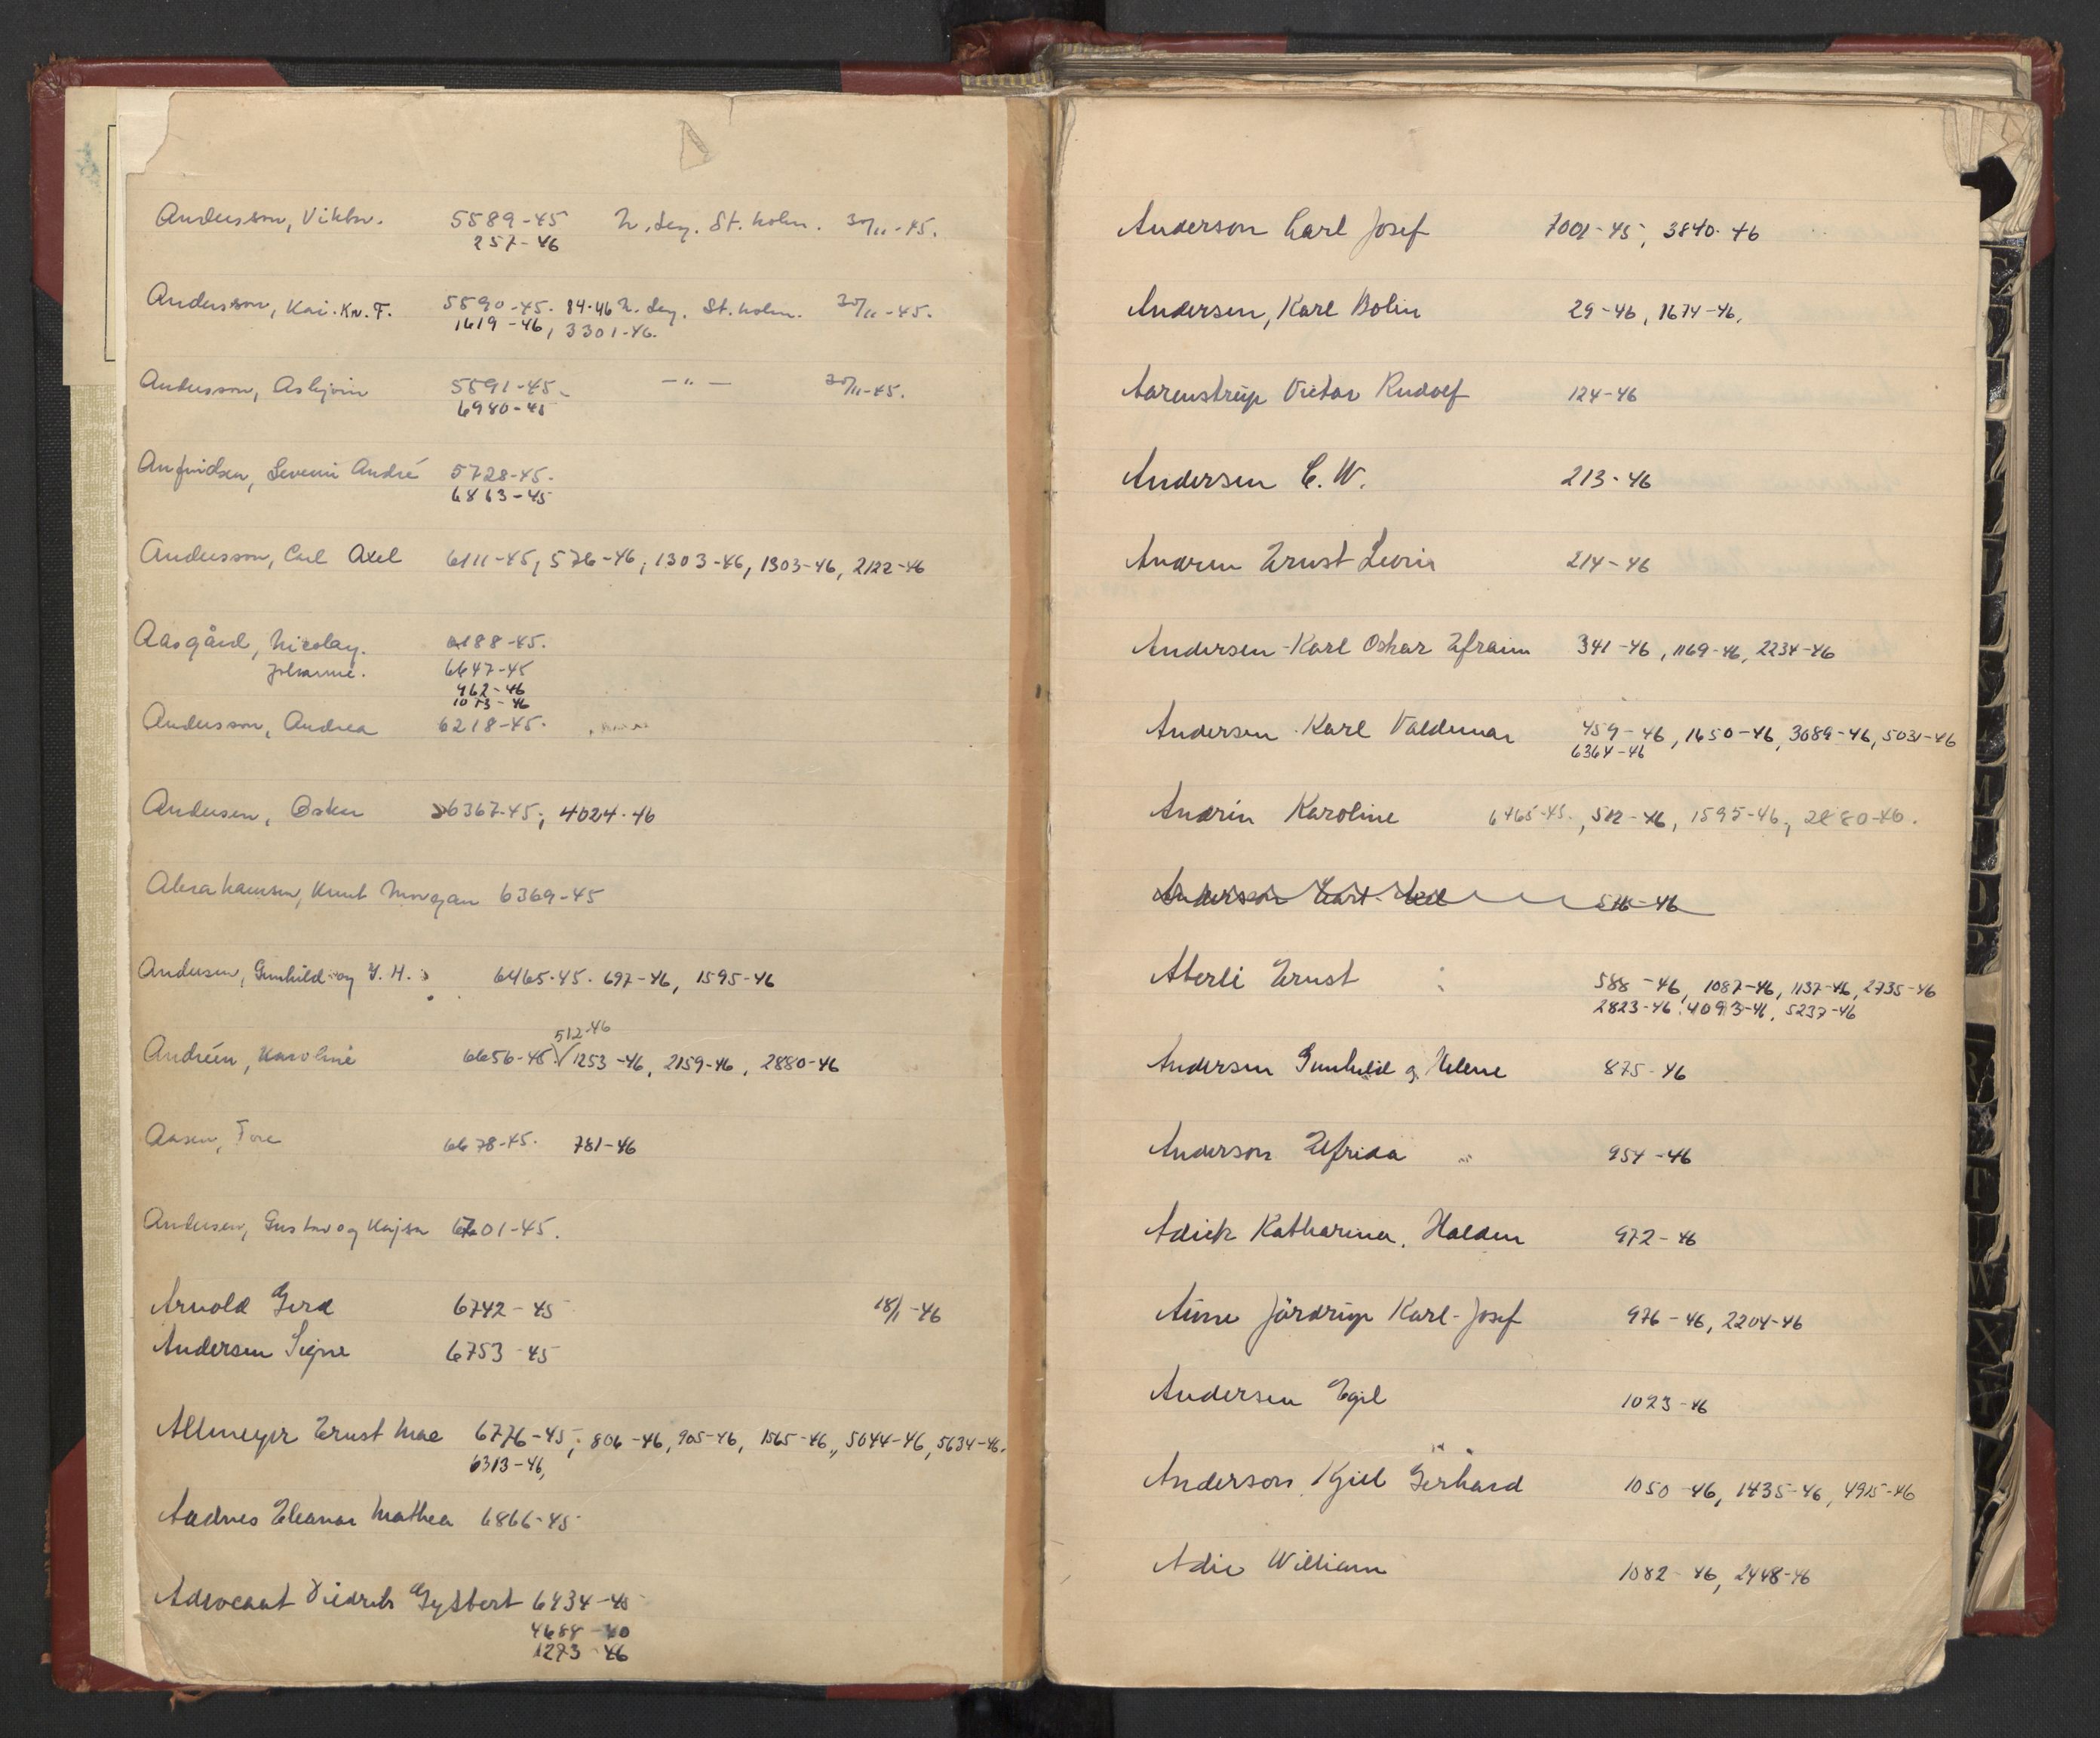 Andersson, Viktor. 5589-45 N. Leg. St. holm. 30/11-45.
257-46
Andersson, Kai. Kn. F. 5590-45. 84-46 N. Leg. St. holm. 30/11-45.
1619-46, 3301-46.
Andersson, Asbjörn 5591-45. -"- 30/11-45.
6980-45
Severin André 5728-45.
6863-45
Andersson, Carl Axel 6111-45, 576-46, 1303-46, 1303-46, 2122-46
Aasgård, Nicolay. 6188-45.
Johanne. 6647-45
962-46
1073-46
Andersson, Andrea 6218-45.
Andersen, Oskar 6367-45; 4024-46
Abrahamsen, Knut Morgan 6369-45
Andersen, Gunhild og Y. H. 6465-45. 697-46, 1595-46
512-46
Andréen, Karoline 6656-45. √ 1253-46, 2159-46, 2880-46
Aasen, Tore 6678-45. 781-46
Andersen, Gustav og Kajsa 6701-45.
Arnold Gerd 6742-45 18/1-46
Andersen Signe 6753-45
Allmeyer Ernst Mae 6776-45; 806-46, 905-46, 1565-46, 5044-46, 5634-46.
6313-46,
Aadnes Eleanor Mathea 6866-45
Advocaat Diedrik Gysbert 6434-45
4688-40
1273-46
Anderson Carl Josef 7001-45, 3840-46
Andersen, Karl Bolin 29-46, 1674-46,
Aarenstrup Victor Rudolf 124-46
Andersen C. W. 213-46
Andren Ernst 214-46
Andersen Karl Oskar Efraim 341-46, 1169-46, 2234-46
Andersen Karl Valdemar 459-46, 1650-46, 3089-46, 5031-46
6364-46
Andrin Karoline 6465-45., 512-46, 1595-46, 2880-46.
Anderson Carl Axel 576-46
Aberli Ernst 588-46, 1087-46, 1137-46, 2735-46
2823-46, 4093-46, 5237-46
Andersen Gunhild og Helene 875-46
Anderson Elfrida 954-46
Adick Katharina, Halden 972-46
Järdrup Karl-Josef 976-46, 2204-46
Andersen Egil 1023-46
Anderson Kjell Gerhard 1050-46, 1435-46, 4915-46
Adie William 1082-46, 2448-46